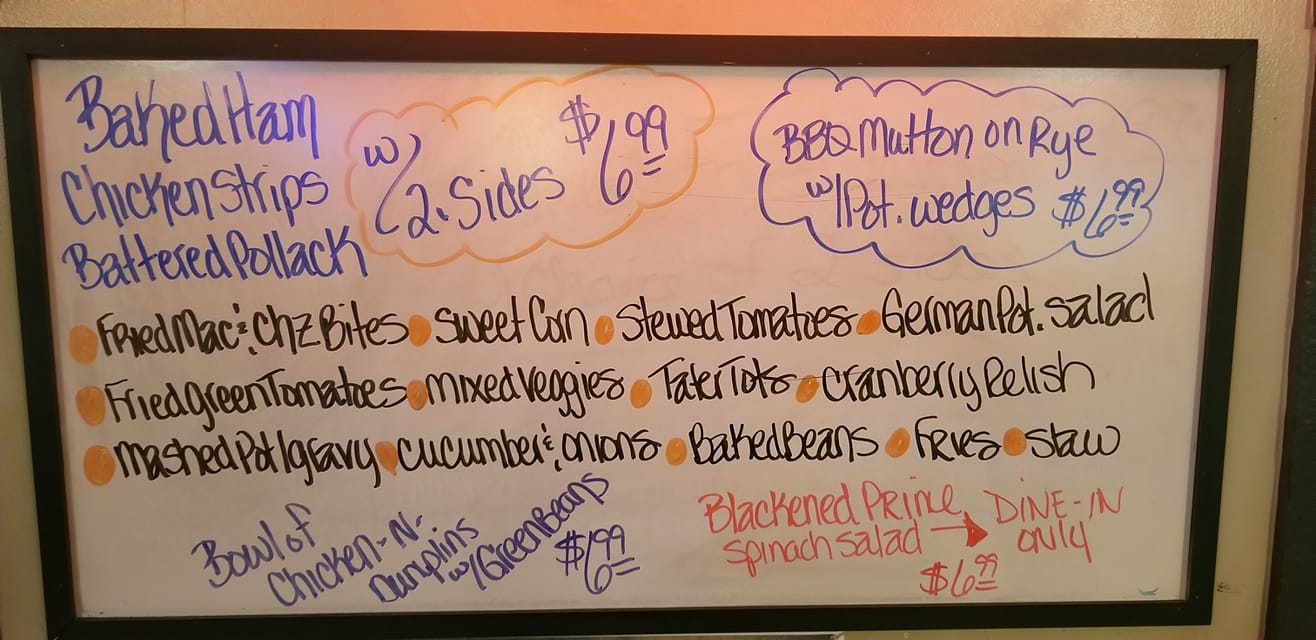 Baked Ham
Chicken Strips
Battered Pollack
w/ 2. Sides $6.99
BBQ Mutton on Rye
w/ Pot. wedges $6.99
Fried Mac & Chz Bites • Sweet Corn • Stewed Tomatoes • German Pot. Salad
Fried Green Tomatoes • Mixed Veggies • Tater Tots • Cranberry Relish
Mashed Pot/gravy • Cucumber & Onions • Baked Beans • Fries • Slaw
Bowl of
Chicken-N-
Dumplins
w/ Green Beans
$6.99
Blackened Prime
Spinach Salad → DINE-IN
ONLY
$6.99